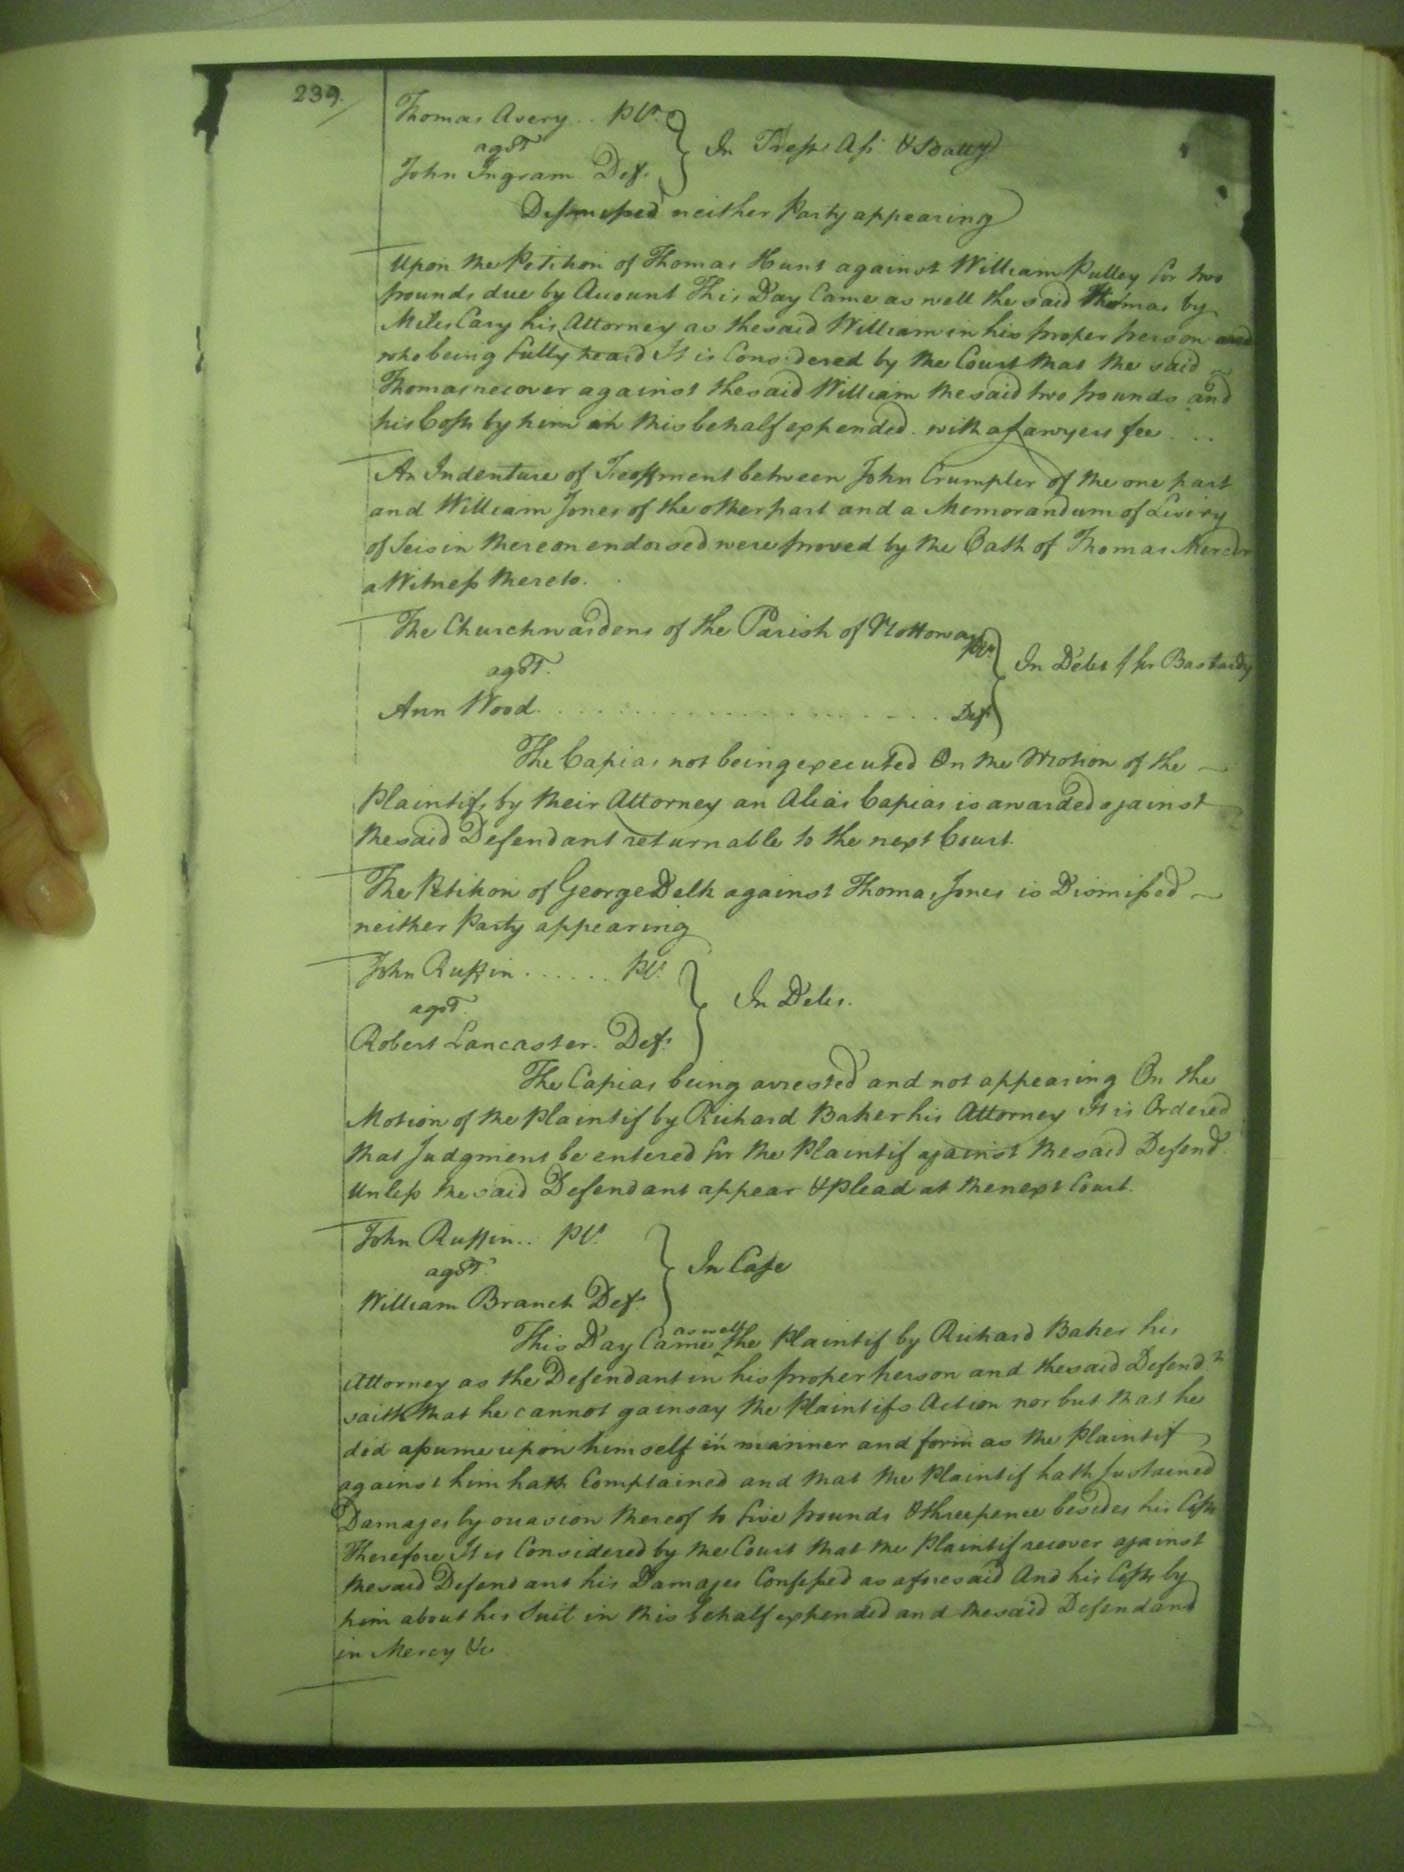 239.
Thomas Avery .. Plt.
agst
John Ingram Def.
In Tresp Ass & Batty
Dismissed neither Party appearing
Upon the Petition of Thomas Hunt against William Pulley for two
pounds due by Account This Day Came as well the said Thomas by
Miles Cary his Attorney as the said William in his proper person and
who being fully heard It is Considered by the Court that the said
Thomas recover against the said William the said two pounds and
his Costs by him in this behalf expended with a Lawyers fee ...
An Indenture of Feoffment between John Crumpler of the one part
and William Jones of the other part and a Memorandum of Livery
of Seisin thereon endorsed were proved by the Oath of Thomas Mercer
a Witness thereto.
The Churchwardens of the Parish of Nottoway Plts
agst.
Ann Wood ............ Def.
In Debt for Bastardy
The Capias not being executed On the Motion of the
Plaintifs by their Attorney an Alias Capias is awarded against
the said Defendant returnable to the next Court.
The Petition of George Delk against Thomas Jones is Dismissed
neither Party appearing
John Ruffin ...... Plt.
agst.
Robert Lancaster. Def.
In Debt.
The Capias being arrested and not appearing On the
Motion of the Plaintif by Richard Baker his Attorney It is Ordered
that Judgment be entered for the Plaintif against the said Defend.
Unless the said Defendant appear & plead at the next Court.
John Ruffin .. Plt.
agst.
William Branch Def.
In Case
This Day Came as well the Plaintif by Richard Baker his
Attorney as the Defendant in his proper person and the said Defendt
saith that he cannot gainsay the Plaintifs Action nor but that he
did assume upon himself in manner and form as the Plaintif
against him hath Complained and that the Plaintif hath Sustained
Damages by occasion thereof to five pounds & threepence besides his Costs
Therefore It is Considered by the Court that the Plaintif recover against
the said Defendant his Damages Confessed as aforesaid And his Costs by
him about his Suit in this behalf expended and the said Defendant
in Mercy &c